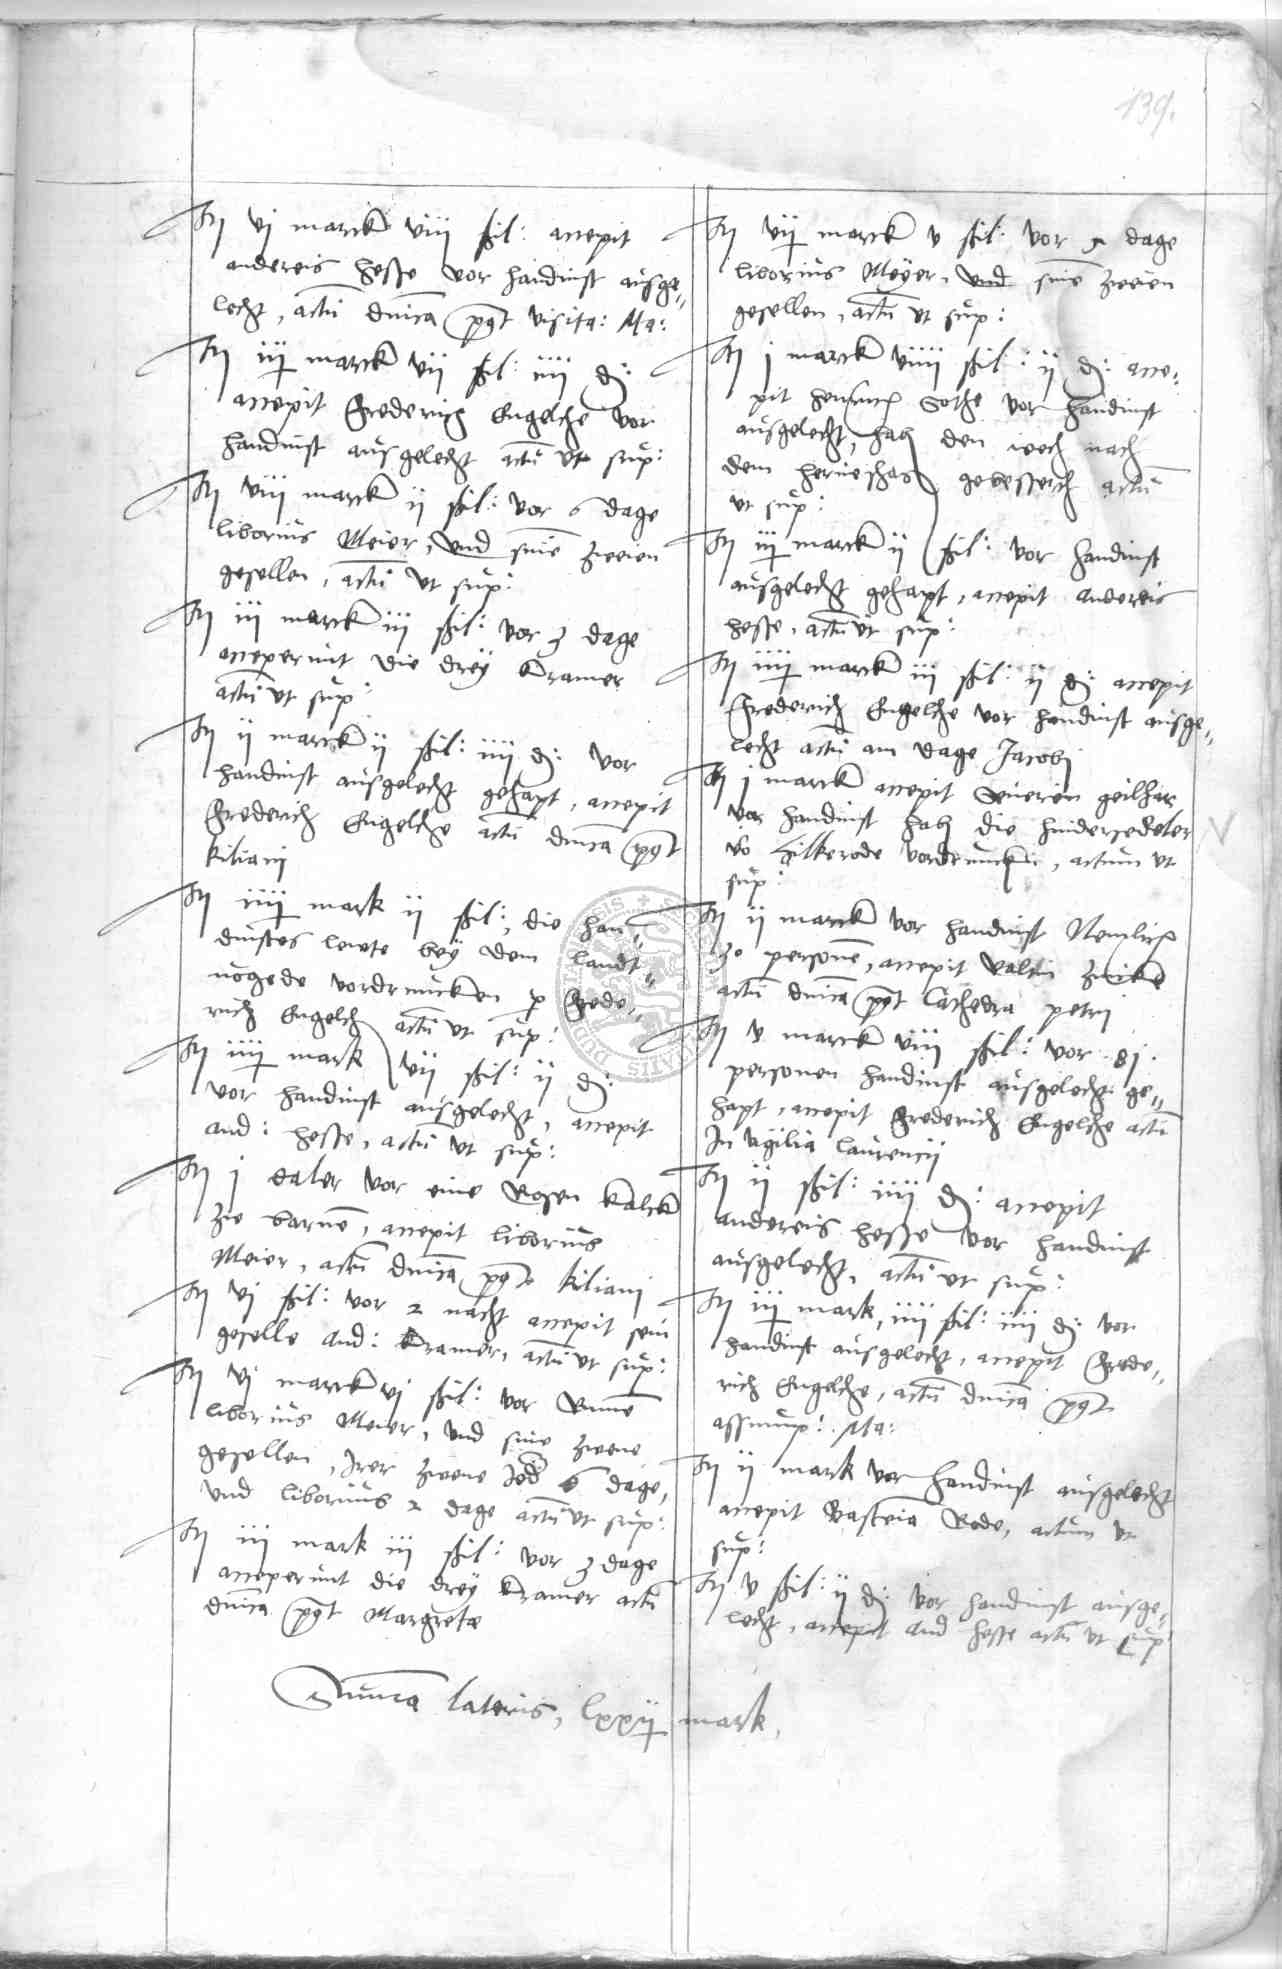 139.
It vj marck viij ßil: accepit
andereis hesse vor handinst ausge„
lecht, actū dnīca post visita: Ma:
It iiij marck vij ßil: iiij d:
accepit Frederich Engelche vor
handinst ausgelecht actū ut sup:
It viij marck ij ßil: vor 6 dage
liborius Meier, und sine zweien
gesellen, actū ut sup:
It iij marck iij ßil: vor 3 dage
acceperunt die drey kramer
actū ut sup:
It ij marck ij ßil: iiij d: vor
handinst ausgelecht gehapt, accepit
Frederich Engelche actū dnīca post
kiliani
It iiij mark ij ßil:, die han„
dinstes lewte bey dem landt„
uogede vordruncken p Frede„
rich Engelch actū ut sup:
It iiij mark vij ßil: ij d:
vor handinst ausgelecht, accepit
and: hesse, actū ut sup:
It j daler vor eine Rosen kalck
zu barnē, accepit liborius
Meier, actū dnīca post kiliani
It vj ßil: vor 2 nacht accepit sein
geselle and: kramer, actū ut sup:
It vj marck vj ßil: vor
liborius Meier, und sine zwene
gesellen, Irer zwene Jed 6 dage,
und liborius 2 dage actū ut sup:
It iij mark iij ßil: vor 3 dage
acceperunt die drey kramer actū
dnīca post Margrete
It vij marck v ßil: vor 5 dage
liborius Meyer, und sine zweien
gesellen, actū ut sup:
It j marck viiij ßil: ij d: acce„
pit henrich Sothe vor handinst
ausgelecht, hab den wech nach
dem gebesserth actū
ut sup:
It iij marck ij ßil: vor handinst
ausgelecht gehapt, accepit andereis
hesse, actū ut sup:
It iiij marck iij ßil: ij d: accepit
Frederich Engelche vor handinst ausge„
lecht actū am dage Jacobj
It j marck accepit Seuerien geilhar
vor handinst hab die hindersedeler
vō hilkerode vordruncken, actum ut
sup:
It ij marck vor handinst Nemlich
30 personē, accepit Valtin
actū dnīca post Cathedra petri
It v marck viij ßil: vor 81
personen handinst ausgelecht ge„
hapt, accepit Frederich Engelche actū
In vigilia laurencij
It ij ßil: iiij d: accepit
andereis hesse vor handinst
ausgelecht, actū ut sup:
It iij mark, iiij ßil: iiij d: vor
handinst ausgelecht, accepit Frede„
rich Engelche, actū dnīca post
assump: Ma:
It ij mark vor handinst ausgelecht
accepit Rode, actum ut
sup:
It v ßil: ij d: vor handinst ausge„
lecht, accepit and hesse actū ut sup
Summa lateris, lxxij mark,